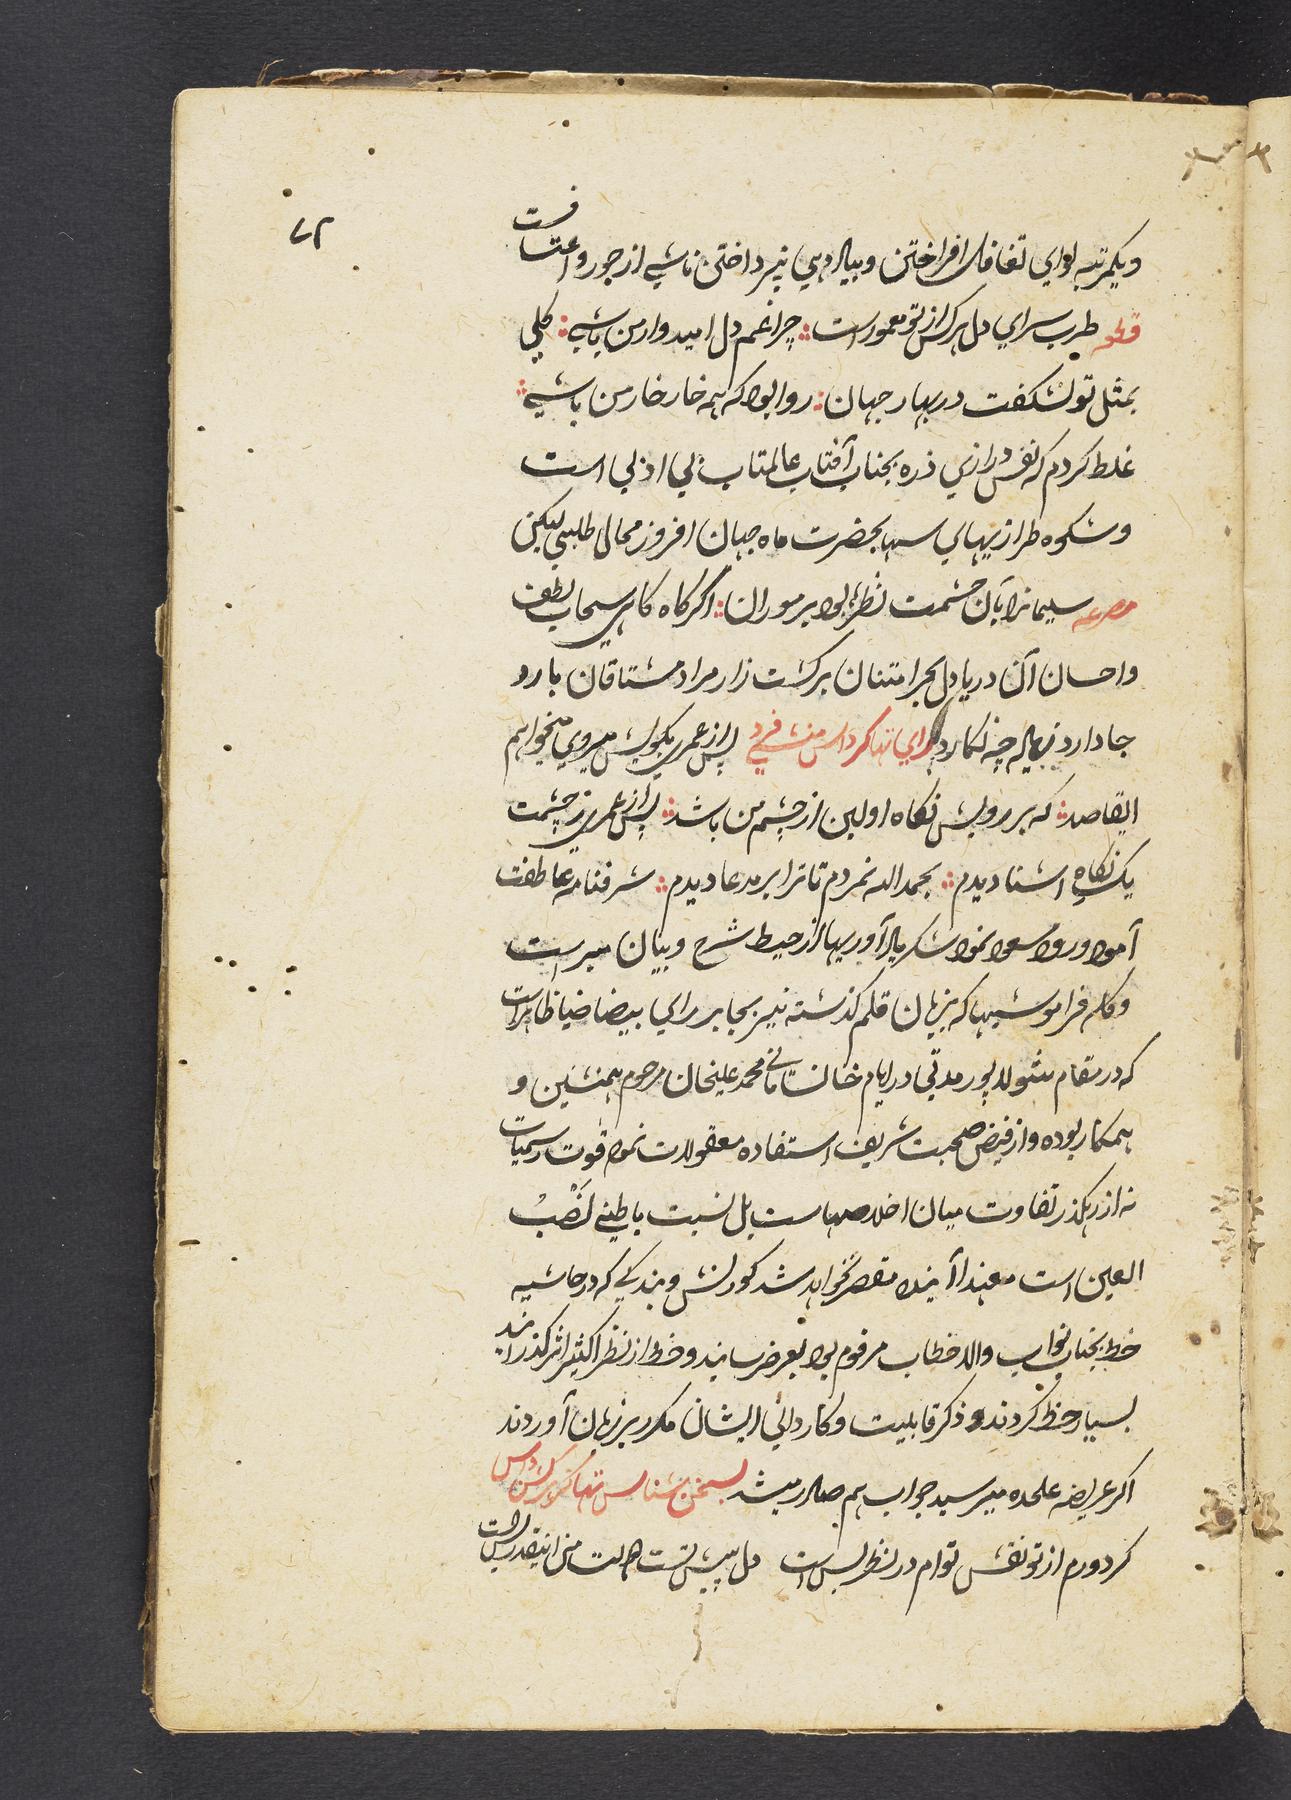 ۷۲
ویکمرتبه لوای تغافل افراختن و بیاددهی نپرداختن ناشی از جور و اعتسافست
قوله طرب سرای دل هر کس از تو معمور است چرا غم دل امیدوار من باشی گلی
بمثل تو نشگفت در بهار جهان روا بود که همه خار خار من باشی
غلط کردم که نفس درازی ذره بجناب آفتاب عالمتاب بی ادبی است
و شکوه طرازیهای سها بحضرت ماه جهان افروز محال طلبی لیکن
مصرعه سلیمانرا بآن حشمت نظرها بود بر موران اگر گاه گاهی سحاب لطف
و احسان آن دریادل بحر امتنان بر کشت زار مراد مشتاقان بارد
جا دارد برای تهاکرداس منشی پس از عمری بکویش میروی میخواهم
ایقاصد که بر رویش نگاه اولین از چشم من باشد پس از عمری ز چشمت
یک نگاهِ اشنا دیدم بحمد الله نمردم تا ترا بر مدعا دیدم شرفنامه عاطفت
آمود ورود مسعود نمود شکر یادآوریها از حیط شرح و بیان مبراست
و گله فراموشیها که بزبان قلم گذشته نیز بجا بر رای بیضا ضیا ظاهر است
که در مقام شولاپور مدتی در ایام خانسامانی محمد علیخان مرحوم همنشین و
همکار بوده و از فیض صحبت شریف استفاده معقولات نموده فوت رسمیات
نه از رهگذر تفاوت میان اخلاصهاست بل نسبت باطنی نَصْبُ
العین است معهذا آینده مقصر نخواهد شد کورنش و بندگی که در حاشیه
خط بجناب نواب والا خطاب مرقوم بود بعرض رسانید و خط از نظر اکثیر اثر گذرانید
بسیار حظ کردند و ذکر قابلیت و کاردانی ایشان مکرر بر زبان آوردند
اگر عریضه علحده میرسید جواب هم صادر میشد بسخن شناس تهاکر کشن داس
گر دورم از تو نقش توام در نظر بس است دل پیش تست حالت من اینقدر بس است